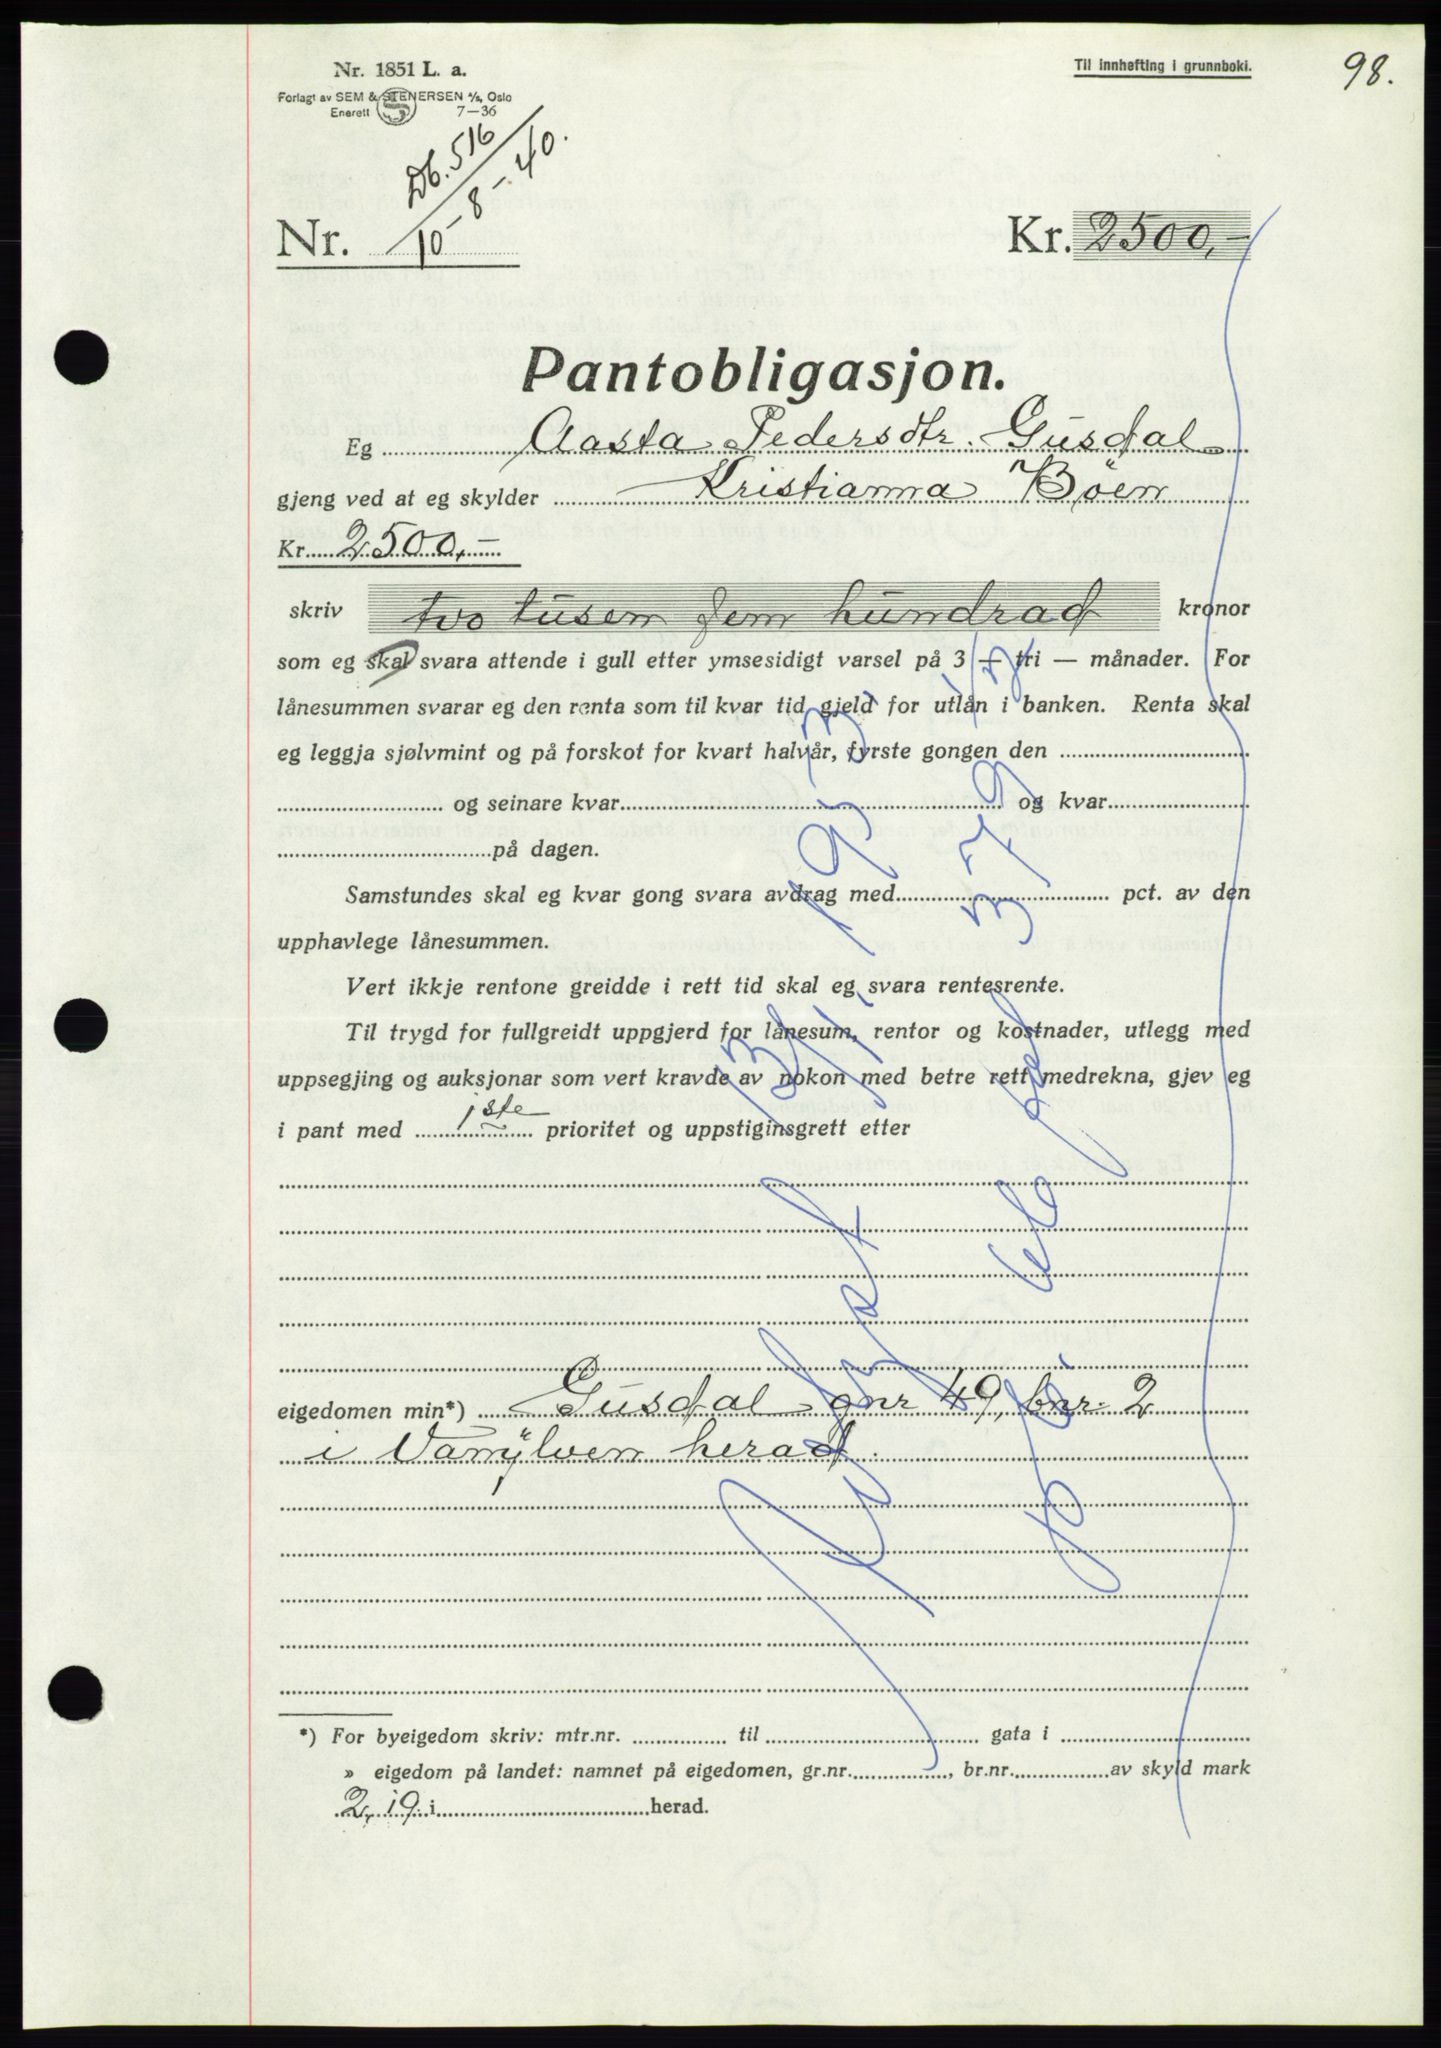 98.
Nr. 1851 L. a.
Til innhefting i grunnboki.
Forlagt av SEM & STENERSEN A/S, Oslo
Enerett 7—36
Db. 516
10-8-40.
Nr.
Kr. 2500,-
Pantobligasjon.
Eg Aasta Pedersdtr. Gusdal
gjeng ved at eg skylder Kristianna Böen
Kr. 2500,-
skriv tvo tusen fem hundrad kronor
som eg skal svara attende i gull etter ymsesidigt varsel på 3 — tri — månader. For
lånesummen svarar eg den renta som til kvar tid gjeld for utlån i banken. Renta skal
eg leggja sjølvmint og på forskot for kvart halvår, fyrste gongen den
og seinare kvar og kvar
på dagen.
Samstundes skal eg kvar gong svara avdrag med pct. av den
upphavlege lånesummen.
Vert ikkje rentone greidde i rett tid skal eg svara rentesrente.
Til trygd for fullgreidt uppgjerd for lånesum, rentor og kostnader, utlegg med
uppsegjing og auksjonar som vert kravde av nokon med betre rett medrekna, gjev eg
i pant med 1ste prioritet og uppstiginsgrett etter
eigedomen min*) Gusdal gnr 49, bnr. 2
i Vanylven herad.
*) For byeigedom skriv: mtr.nr. til gata i
» eigedom på landet: namnet på eigedomen, gr.nr. , br.nr. av skyld mark
2,19 i herad.